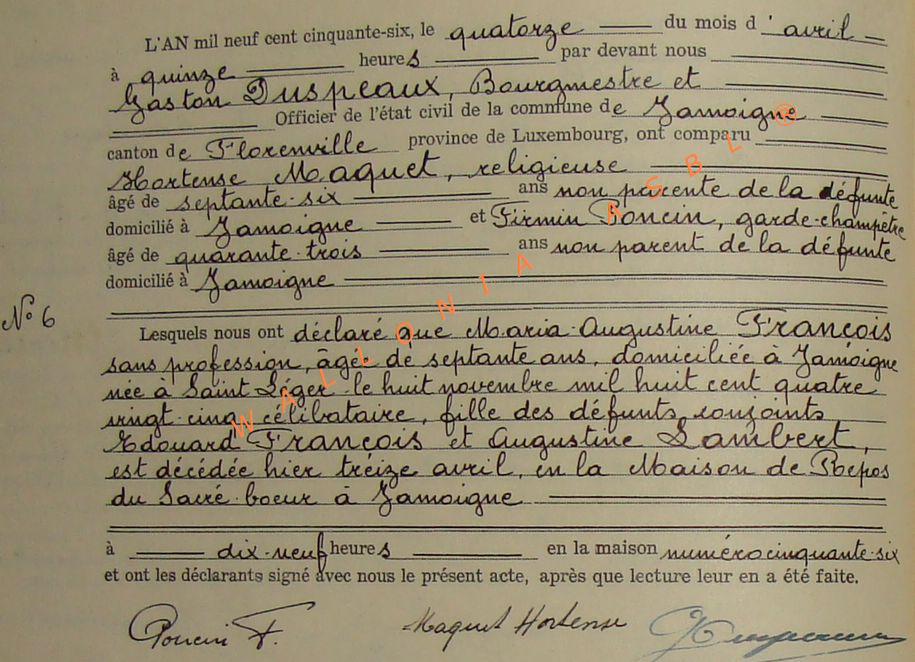 L'AN mil neuf cent cinquante-six, le quatorze du mois d' avril
à quinze heures par devant nous
Gaston Duspeaux, Bourgmestre et
Officier de l'état civil de la commune de Jamoigne
canton de Florenville province de Luxembourg, ont comparu
Hortense Maquet, religieuse
âgé de septante-six ans non parente de la défunte
domicilié à Jamoigne et Firmin Poncin, garde-champêtre
âgé de quarante-trois ans non parent de la défunte
domicilié à Jamoigne
N° 6
Lesquels nous ont déclaré que Maria-Augustine François
sans profession, âgée de septante ans, domiciliée à Jamoigne
née à Saint Léger le huit novembre mil huit cent quatre
vingt-cinq célibataire, fille des défunts conjoints
Edouard François et Augustine Lambert,
est décédée hier treize avril, en la Maison de Repos
du Sacré-Coeur à Jamoigne
à dix-neuf heures en la maison numéro cinquante-six
et ont les déclarants signé avec nous le présent acte, après que lecture leur en a été faite.
Poncin F. Maquet Hortense
WALLONIA ASBL ®